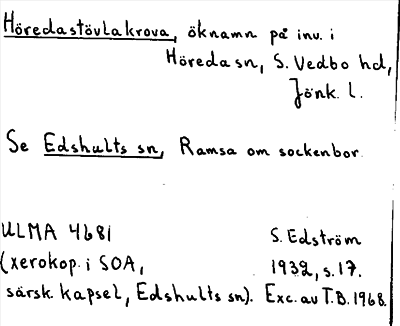 Höredastövlakrova, öknamn på inv. i
Höreda sn, S. Vedbo hd,
Jönk. l.
Se Edshults sn, Ramsa om sockenbor.
ULMA 4681
S. Edström
(xerokop. i SOA,
1932, s. 17.
särsk. kapsel, Edshults sn).
Exc. av T.B. 1968.